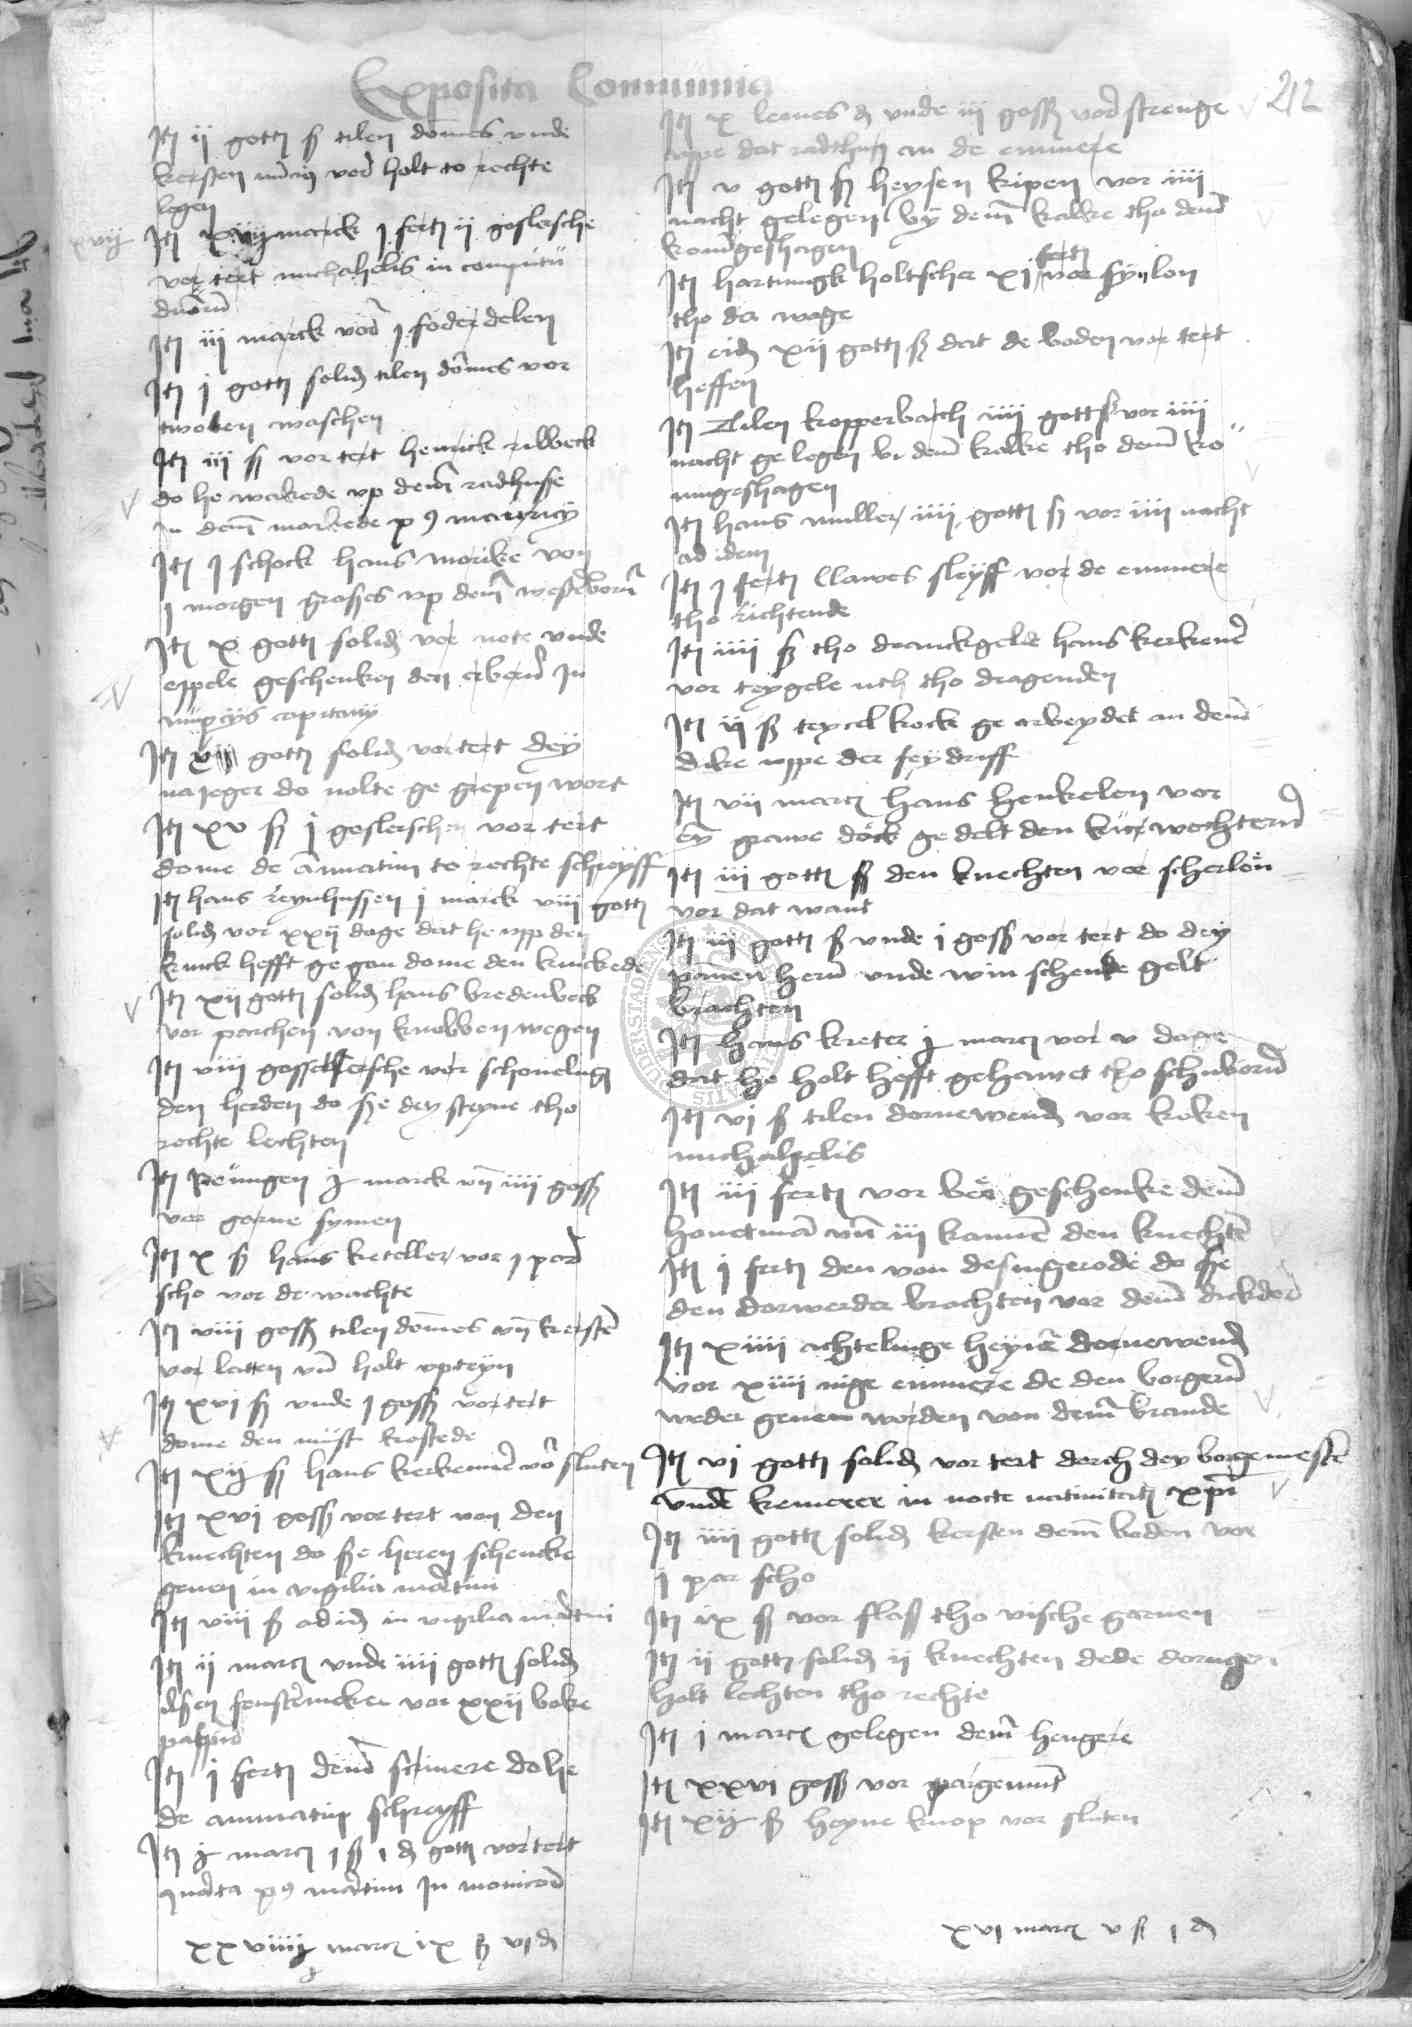 Exposita Communia
212
Itē ii gottē sβ tilen dom̄es vnde
kersten vor holt to rechte
legen
xvij
Itē xvij marck j fertē ii goslersche
vor tert michahelis in computū
duorū
Itē iii marck vor j foder delen
Itē j gottē solidē tilen dom̄es vor
twolen waschen
Itē iii sβ vor tert henrick rilbeck
do he wakede vp dem̄ radhusse
In dem̄ markede p9 mauricij
Itē j schock hans morike von
j morgen grases vp dem̄ westerborn̄
Itē x gottē solidē vor note vnde
eppele geschenken den erbern̄ In
nupcijs capitanij
Itē gottē solidē vor tert dey
na jeger do nolte ge grepen wort
Itē xv sβ j goslerschen vor tert
dome de an̄uatim to rechte schreyff
Itē hans reynhussen j marck viii gottē
solidē vor xxij dage dat he vpp den
knick hefft ge gan dome den knickede
Itē xij gottē solidē hans bredenbeck
vor parchen von knobben wegen
Itē viii gosselersche vor schonelingē
den herden do se dey steyne tho
rechte lechten
Itē Reūngen j marck vn̄ iiii gossē
vor garne symen
Itē x sβ hans keteller vor j par
scho vor de wachte
Itē viii gossē tilen dom̄es vn̄ kerstē
vor latten vn̄ holt vpteyn
Itē xvj sβ vnde j gossē vor tert
dome den mist kostede
Itē xij sβ hans kerkenerē vor sluten
Itē xvj gossē vor tert von den
knechten do se heren schencke
geuen in vigilia martini
Itē viii sβ ad idē in vigilia martini
Itē ij marcē vnde iiii gottē solidē
ilsen fenstermeker vor xxij boke
pappirs
Itē j fertē dem̄ scriuere do he
de annuatim schreyff
Itē j marcē j sβ j dē gottē vor tert
quarta p9 martini In
xxviiij marcē ix sβ vj dē
Itē x leones dē vnde iij gossē vor strenge
vppe dat radthusz an de emmere
Itē v gottē sβ heysen kipen vor iiii
nacht gelegen by dem̄ kalke tho dem̄
koningeshagen
Itē hartungk holtscher xj fertē vor synlon
tho der wage
Itē eidē xij gottē sβ dat de boden vor tert
heffen
Itē Tilen kopperbarch iiii gottē sβ vor iiii
nacht ge legen bi dem̄ kalke tho dem̄ ko
ningeshagen
Itē hans muller iiii gottē sβ vor iiii nacht
ad idem
Itē j fertē Clawes sleyff vor de emmere
tho richtende
Itē iiii sβ tho dranckgelde hans kerkenerē
vor teygele uth tho dragenden
Itē ij sβ teycel kock ge arbeydet an dem̄
dike vppe der seydrift
Itē vij marcē hans henkelen vor
eyn̄ grawe dock ge delt den kur wechtern̄
Itē iij gottē sβ den knechten vor scherlon
vor dat want
Itē iij gottē sβ vnde j gossē vor tert do dey
von̄en hern̄ vnde win schenke gelt
brachten
Itē hans kreter j marcē vor v dage
dat he holt hefft gehawet tho schuborn̄
Itē vj sβ tilen dornewendē vor koken
michahelis
Itē iii fertē vor ber geschenke dem̄
houetman̄ vn̄ iii kannē den knechtē
Itē j fertē den von desingerode do se
den dorwerder brochten vor dem̄ dickdor
Itē xiiii achtelinge heynē dornewendē
vor xiiii nige emmere de den borgern̄
weder geuen worden von dem̄ brande
Itē vj gottē solidē vor tert dorch dey borgemestē
vnde kemerer in nocte natiuitatē xpi
Itē iiii gottē solidē kersten dem̄ boden vor
j par scho
Itē ix sβ vor flasz tho vische garnen
Itē ij gottē solidē ij knechten dede dorngen
holt lechten tho rechte
Itē j marcē gelegen dem̄ hengere
Itē xxvj gossē vor pargement
Itē xij sβ heyne knop vor sluten
xvj marcē v sβ j dē